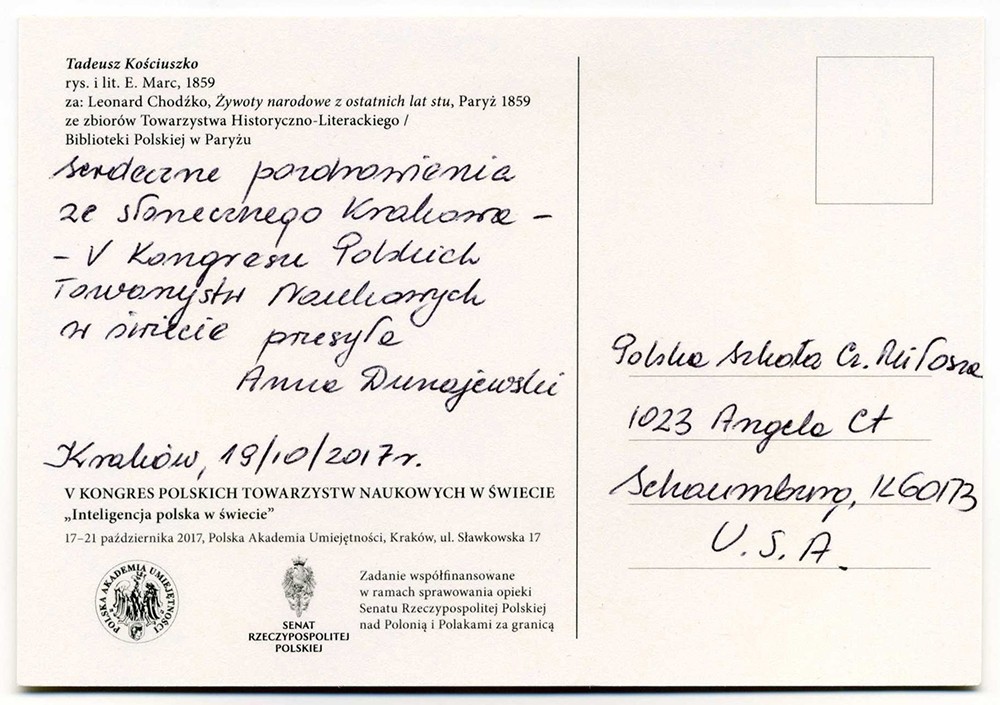 Tadeusz Kościuszko
rys. i lit. E. Marc, 1859
za: Leonard Chodźko, Żywoty narodowe z ostatnich lat stu, Paryż 1859
ze zbiorów Towarzystwa Historyczno-Literackiego /
Biblioteki Polskiej w Paryżu
Serdeczne pozdrowienia
ze słonecznego Krakowa –
– V Kongresu Polskich
Towarzystw Naukowych
w świecie przesyła
Anna Dunajewski
Kraków, 19/10/2017r.
V KONGRES POLSKICH TOWARZYSTW NAUKOWYCH W ŚWIECIE
„Inteligencja polska w świecie”
17–21 października 2017, Polska Akademia Umiejętności, Kraków, ul. Sławkowska 17
POLSKA AKADEMIA UMIEJĘTNOŚCI
SENAT
RZECZYPOSPOLITEJ
POLSKIEJ
Zadanie współfinansowane
w ramach sprawowania opieki
Senatu Rzeczypospolitej Polskiej
nad Polonią i Polakami za granicą
Polska Szkoła Cz. Miłosza
1023 Angela Ct
Schaumburg, IL 60173
U.S.A.